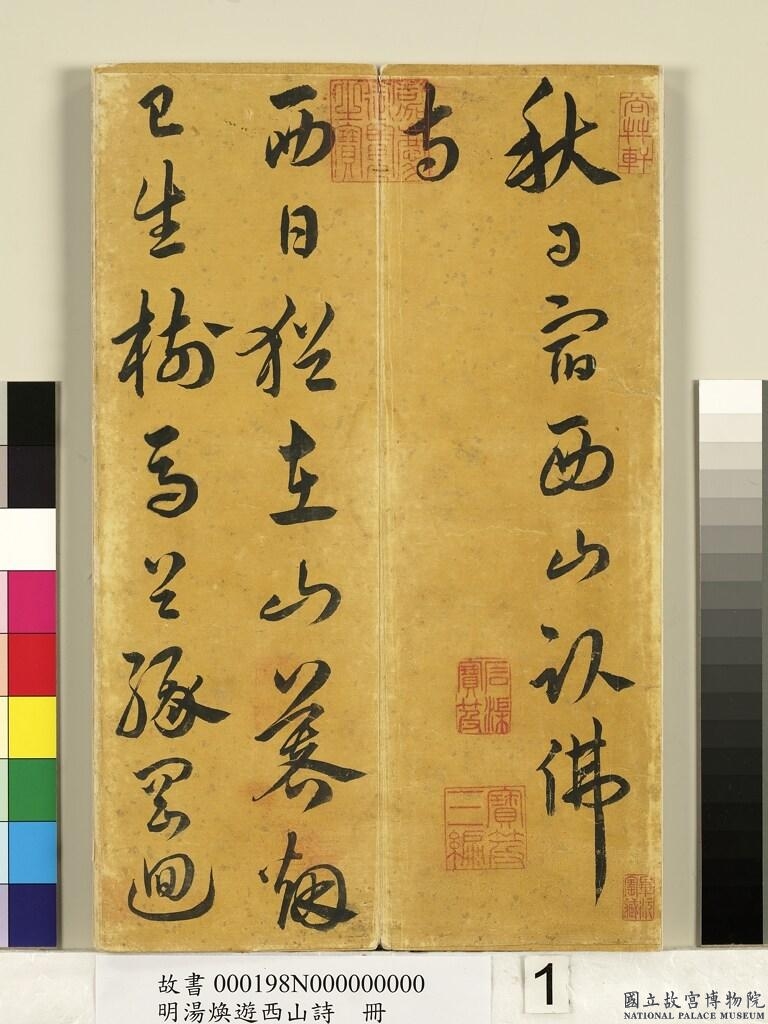 秋日宿西山臥佛
寺
西日猶在山暮烟
已生樹馬首緣岡迴
嘉慶御覽之寶
石渠寶笈
寶笈三編
故書 000198N000000000
明湯煥遊西山詩 冊
1
國立故宮博物院
NATIONAL PALACE MUSEUM